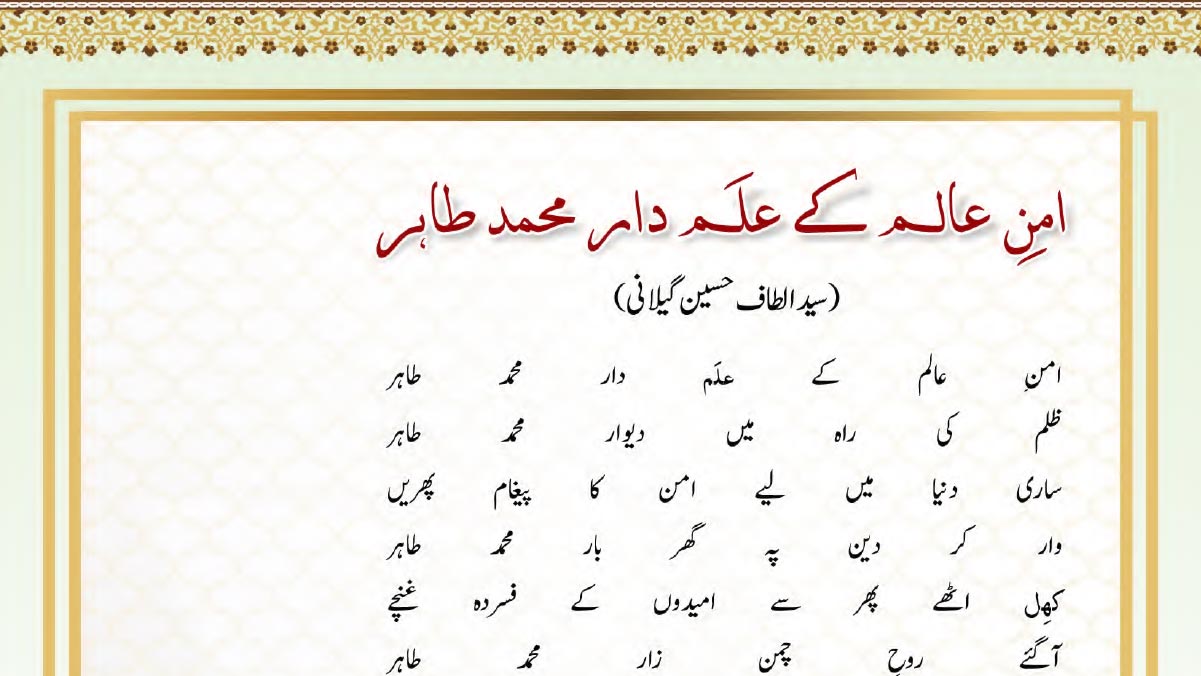 امنِ عالم کے علَم دار محمد طاہر
(سید الطاف حسین گیلانی)
امنِ عالم کے علَم دار محمد طاہر
ظلم کی راہ میں دیوار محمد طاہر
ساری دنیا میں لیے امن کا پیغام پھریں
وار کر دین پہ گھر بار محمد طاہر
کھِل اٹھے پھر سے امیدوں کے فسردہ غنچے
آگئے روحِ چمن زار محمد طاہر